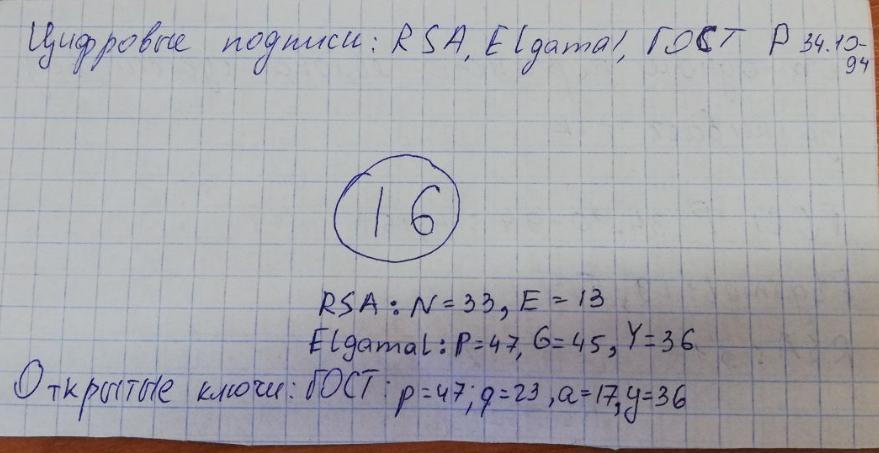 Цифровые подписи: RSA, Elgamal, ГОСТ Р 34.10-94
16
RSA: N=33, E=13
Elgamal: P=47, G=45, Y=36
Открытые ключи: ГОСТ: p=47; q=23, a=17, y=36